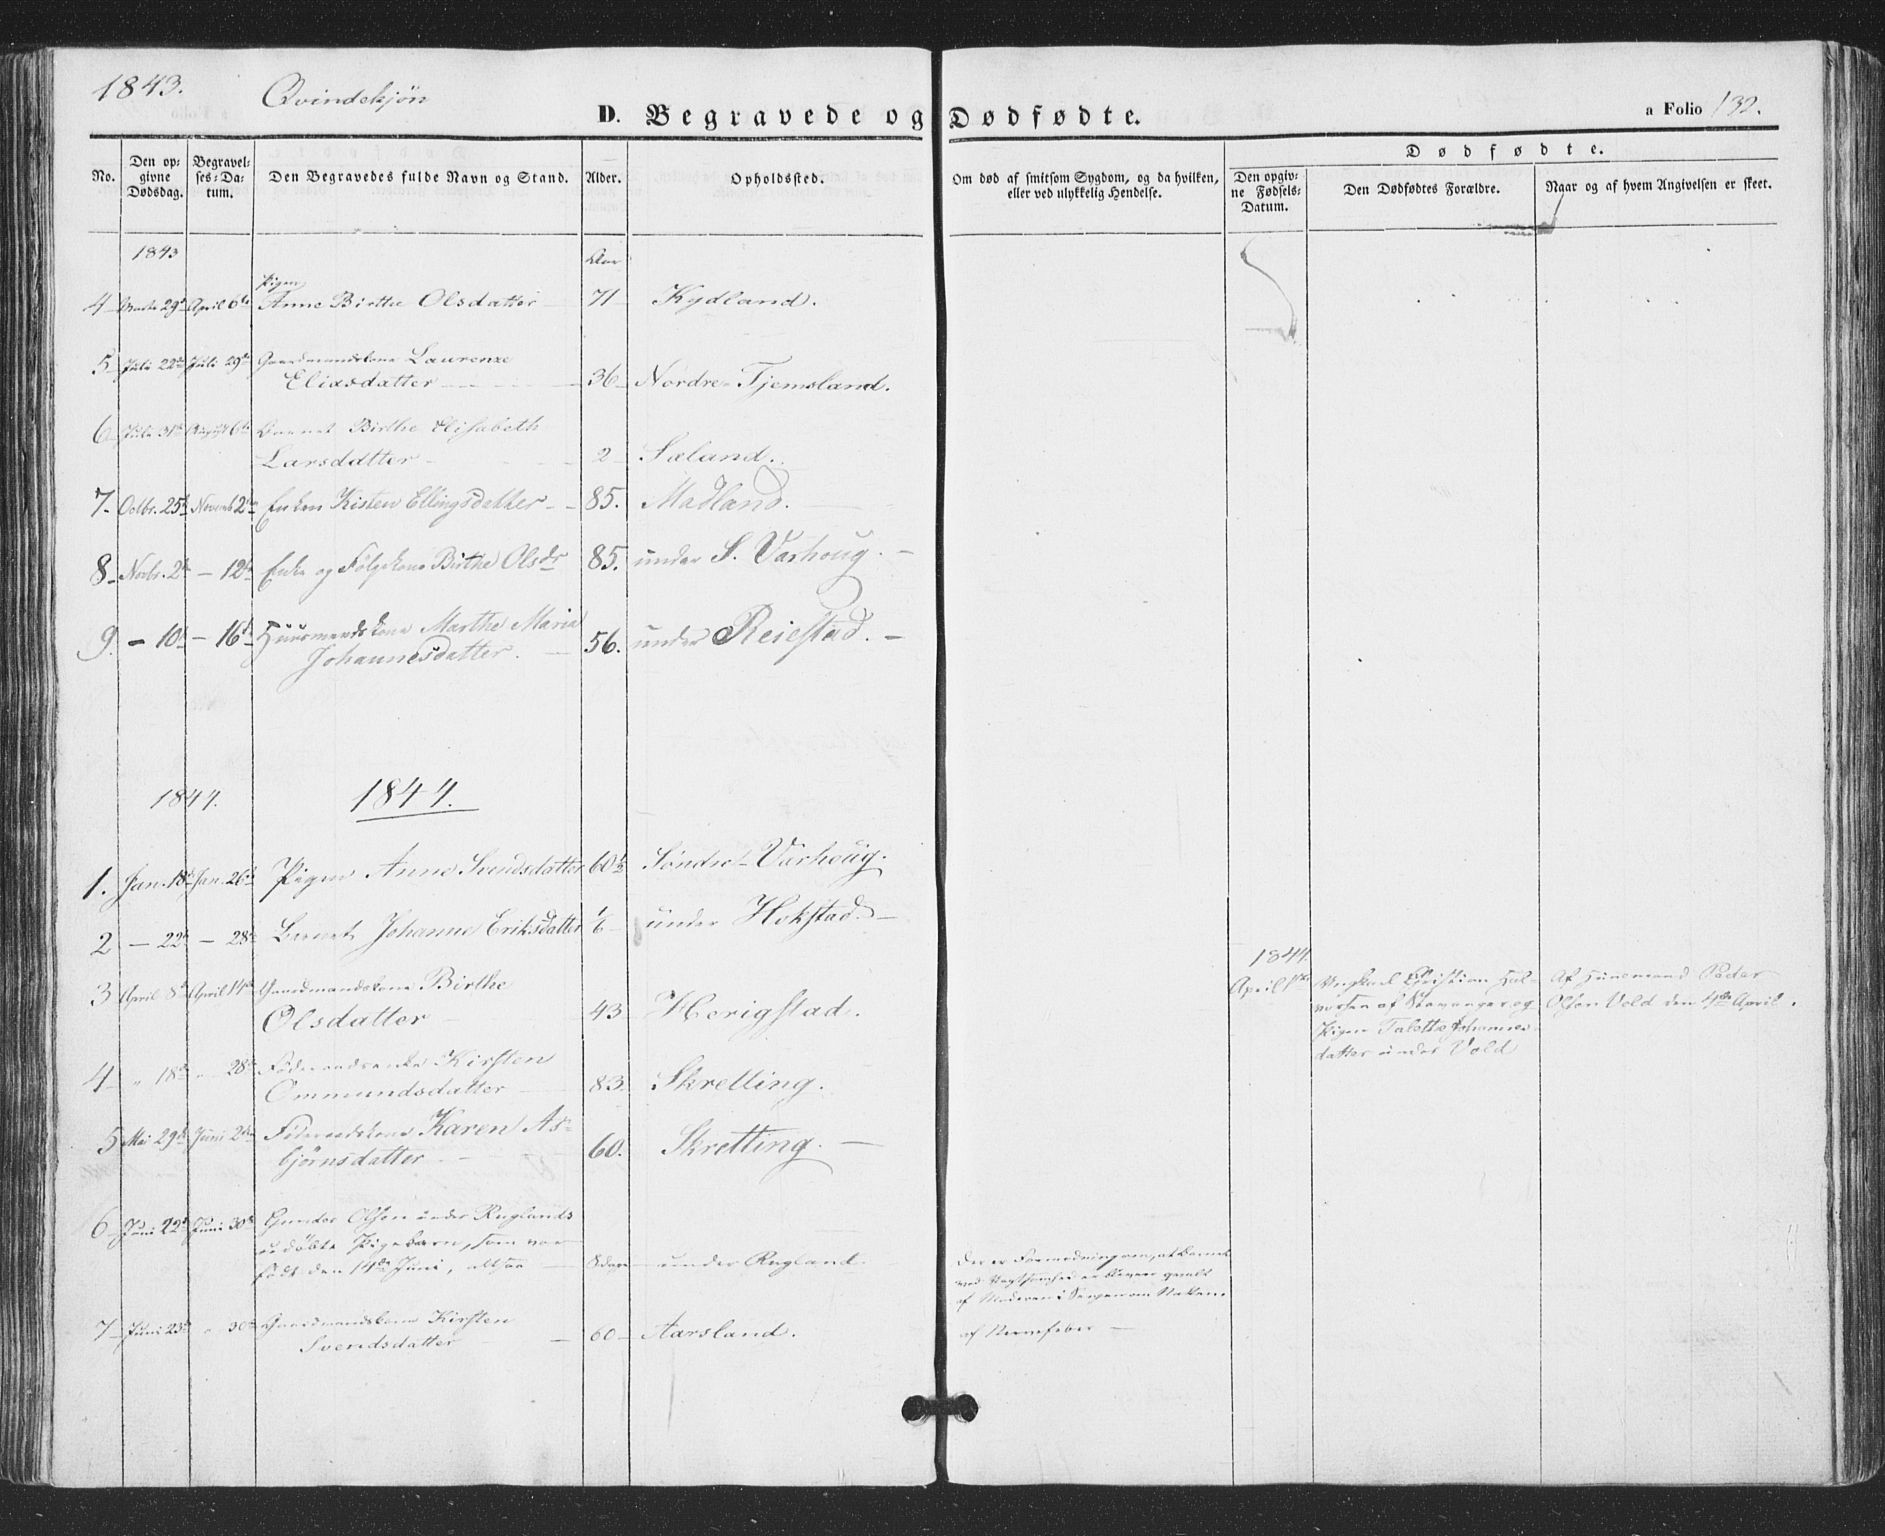 1843.
Qvindekjøn
D. Begravede og Dødfødte.
a Folio 132.
Dødfødte.
No.
Den op-
givne
Dødsdag.
Begravel-
ses-Da-
tum.
Den Begravedes fulde Navn og Stand.
Alder.
Opholdssted.
Om død af smitsom Sygdom, og da hvilken,
eller ved ulykkelig Hendelse.
Den opgiv-
ne Fødsels-
Datum.
Den Dødfødtes Forældre.
Naar og af hvem Angivelsen er skeet.
1843
Aar
Pigen
4 Marts 29de April 6te Anne Birthe Olsdatter 71 Kydland.
5 Juli 22de Juli 29de Gaardmandskone Laurenze
Eliasdatter 36 Nordre-Tjemsland.
6 Julii 31te August 6te Barnet Birthe Elisabeth
Larsdatter 2 Sæland.
7. Octbr. 25de Novemb 2den Enken Kisten Ellingsdatter 85. Madland.
8 Novbr. 2den 12te Enke og Følgekone Birthe Olsdr 85. under S. Varhoug.
9. 10de 16de Huusmandskone Marthe Maria
Johannesdatter. 56. under Reiestad.
1844.
1844.
1. Jan. 18de Jan. 26de Pigen Anne Svendsdatter 60½ Søndre-Varhoug.
2 22de 28de Barnet Johanne Eriksdatter 1/6 under Hokstad.
3 April 8de April 14de Gaardmandskone Birthe
Olsdatter 43 Herigstad.
1844.
April 1ste Ungkarl Christian Hal-
vorsen af Stavanger og
Pigen Talette Johannes-
datter under Vold
Af Huusmand Peder
Olsen Vold den 4de April.
4 " 18de " 28de Føderaadsenke Kirsten
Ommundsdatter 83. Skretting.
5 Mai 29de Juni 2den Føderaadskone Karen As-
bjørnsdatter 60. Skretting.
6 Juni 22de Juni 30te Gunder Olsen under Ruglands
udøbte Pigebarn, som var
født den 14de Juni, altsaa 8 dage under Rugland.
Der er Formodning om, at Barnet
ved Uagtsomhed er bleven qvalt
af Moderen i Sengen om Natten.
7 Juni 23de " 30te Gaardmandskone Kirsten
Svendsdatter 60 Aarsland.
af Nervefeber